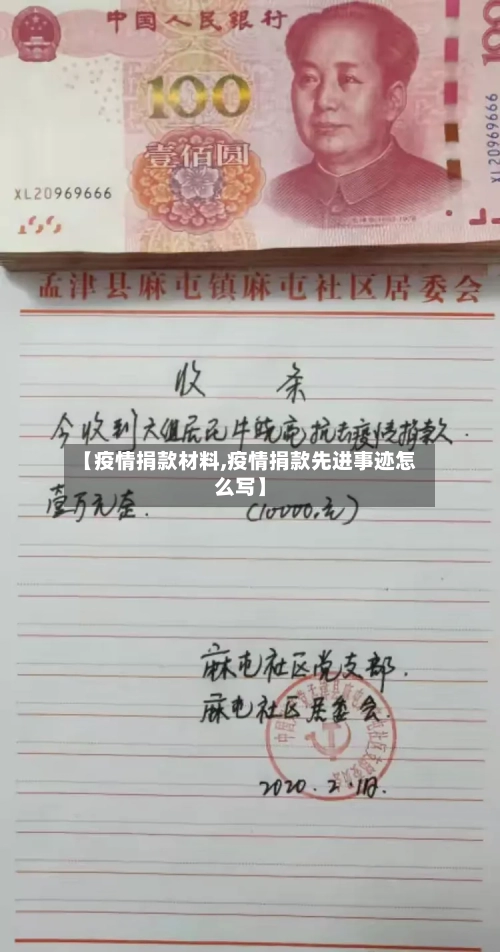 中国人民银行
100
壹佰圆
XL20969666
XL20969666
100
孟津县麻屯镇麻屯社区居委会
收 条
今收到六组居民牛晓亮抗击疫情捐款.
【疫情捐款材料,疫情捐款先进事迹怎
么写】
壹万元整. (10000.元)
麻屯社区党支部.
麻屯社区居委会.
2020.2.1日.